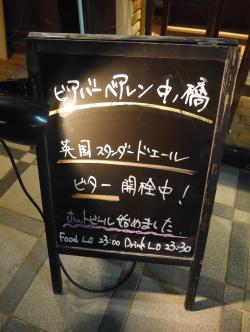 ビアバーベアレン中ノ橋
英国スタンダードエール
ビター開栓中!
ホットビール始めました
Food LO 23:00 Drink LO 23:30